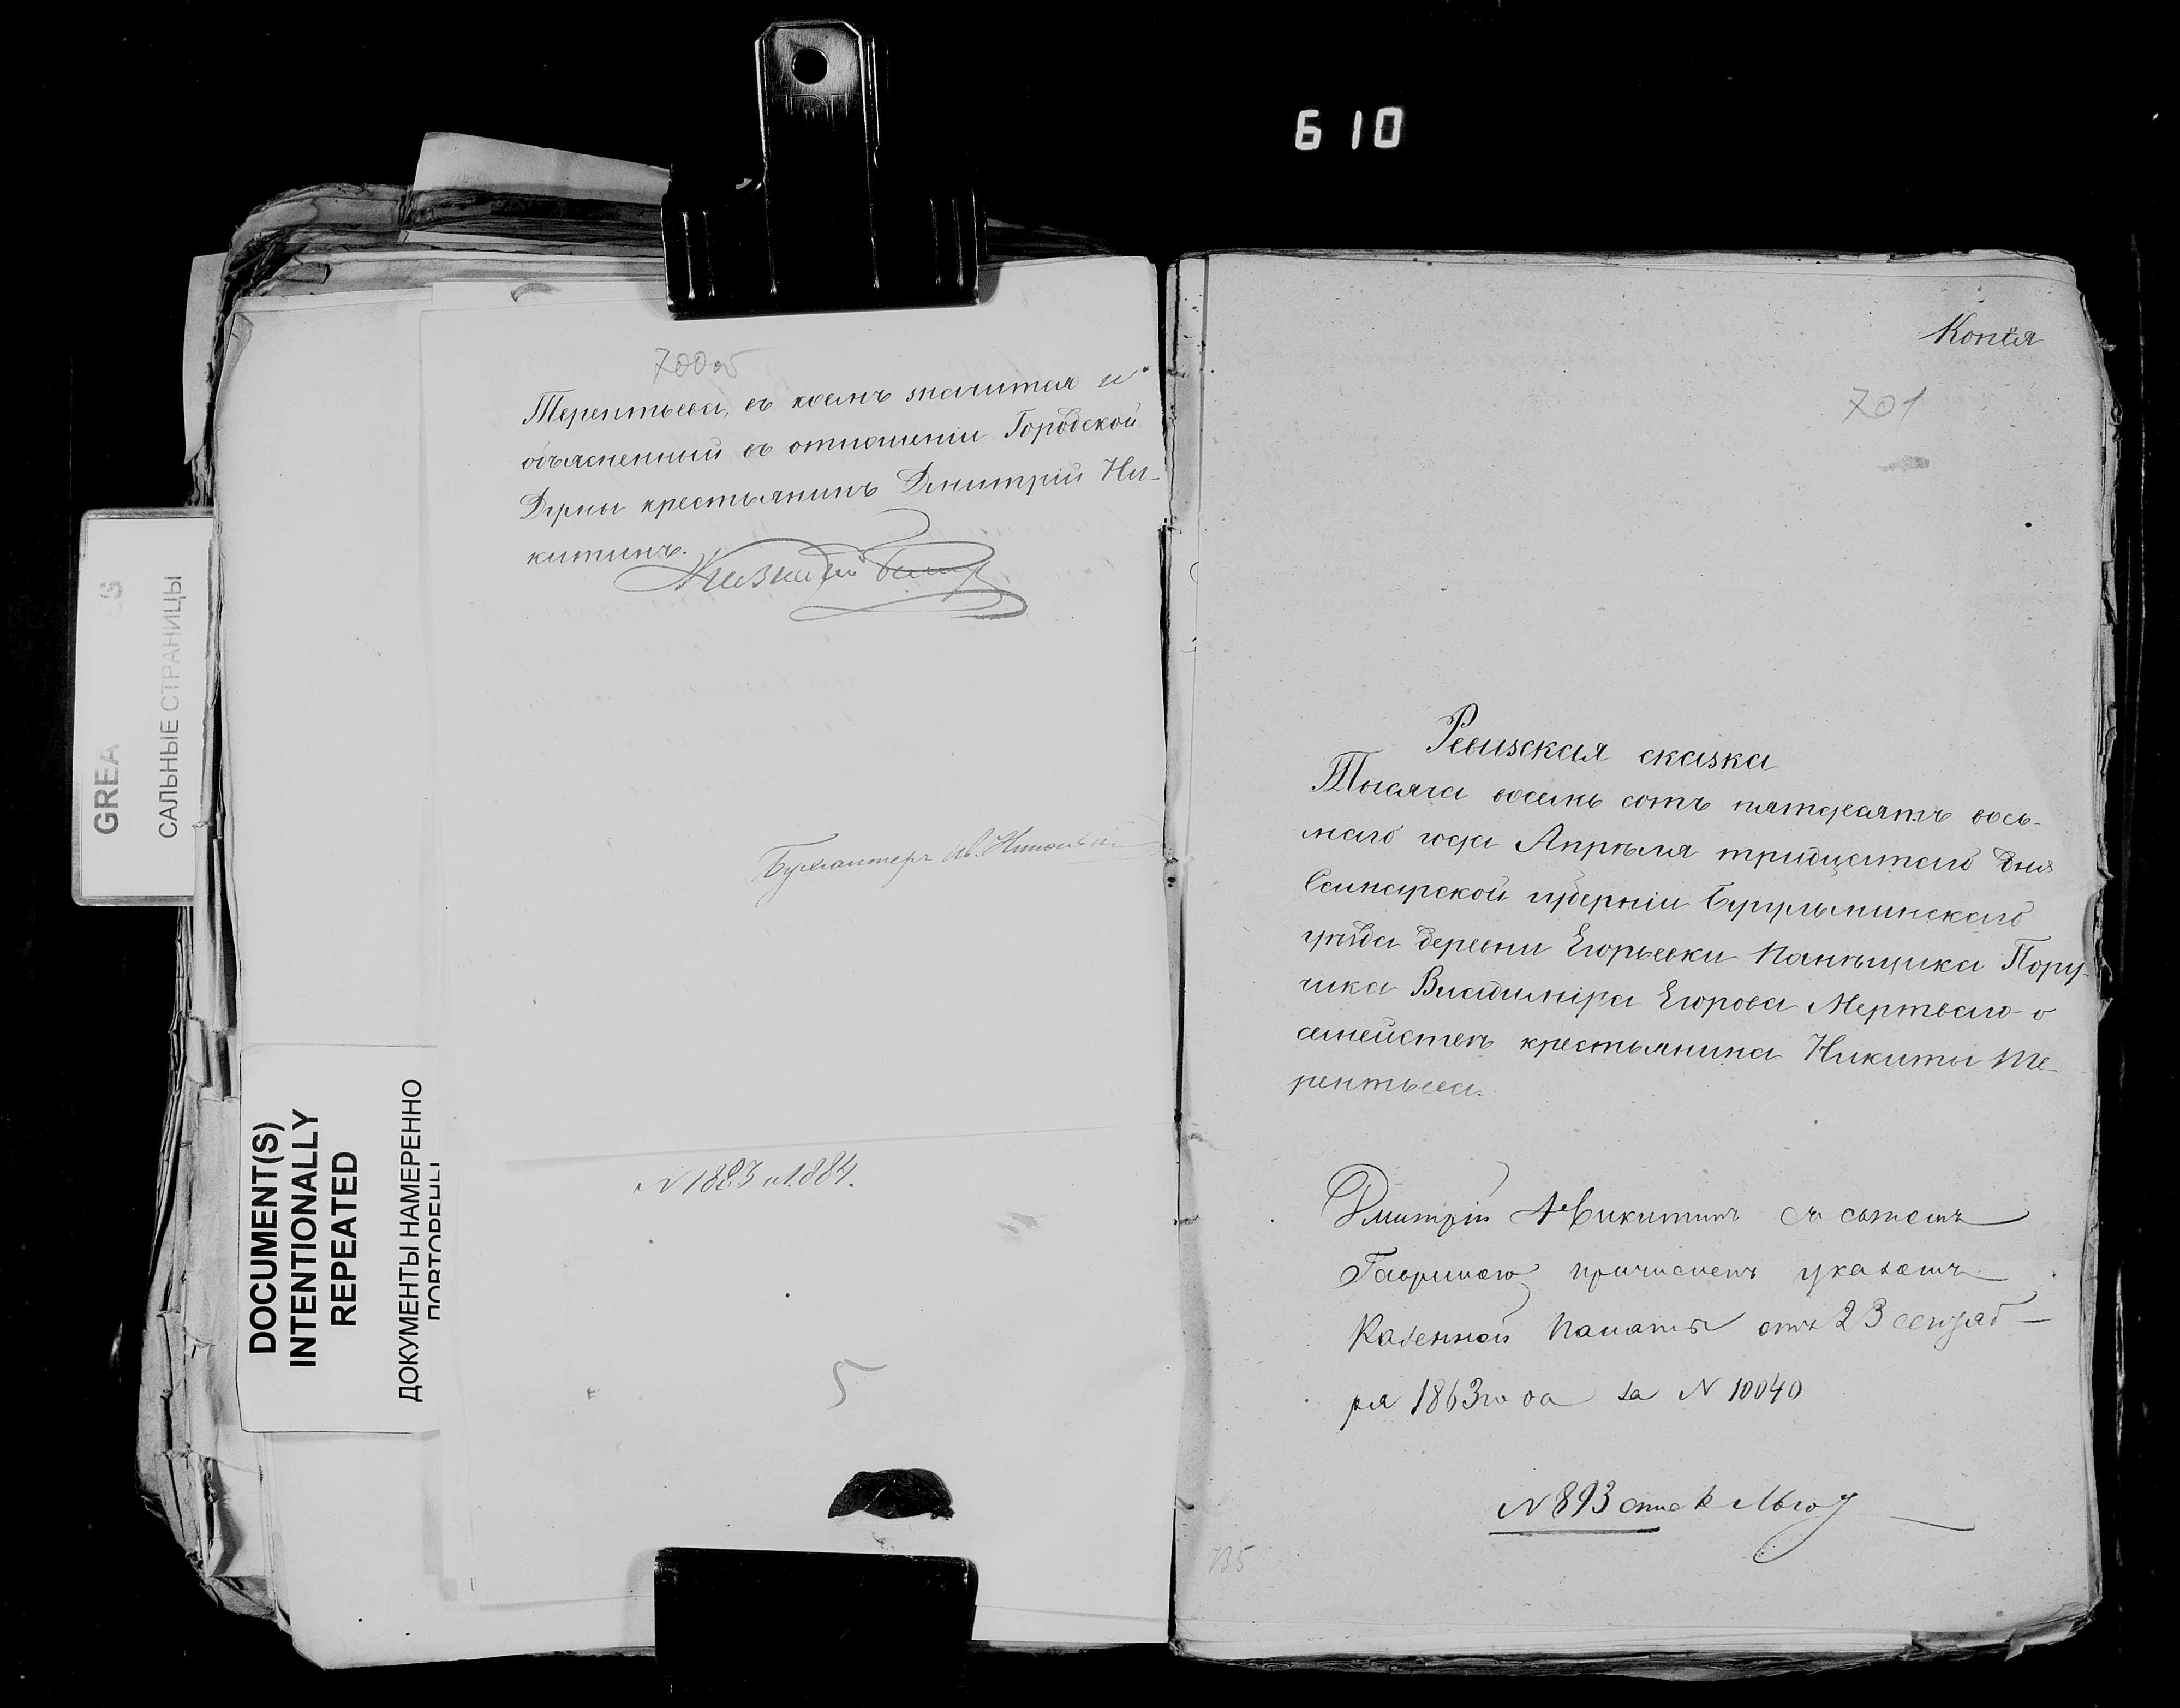 610
700об
Терентьева, въ коемъ значится и
объясненный въ отношеніи Городской
Думы крестьянинъ Дмитрій Ни-
китинъ.
Бухгалтеръ Ив.
N 1883 и 1884.
5
GREA
САЛЬНЫЕ СТРАНИЦЫ
DOCUMENT(S)
INTENTIONALLY
REPEATED
ДОКУМЕНТЫ НАМЕРЕННО
ПОВТОРЕНЫ
Копія
701
Ревизская сказка
Тысяча восемь сотъ пятдесятъ вось-
маго года Апрѣля тридцатаго дня
Самарской губерніи Бугульминскаго
уѣзда деревни Егорьевки Помѣщика Пору-
чика Владиміра Егорова Мертваго о
семействѣ крестьянина Никиты Те-
рентьева.
Дмитрій Никитинъ съ сыномъ
Гавриломъ причисленъ указомъ
Казенной Палаты отъ 23 сентяб-
ря 1863 года за N 10040
N 893